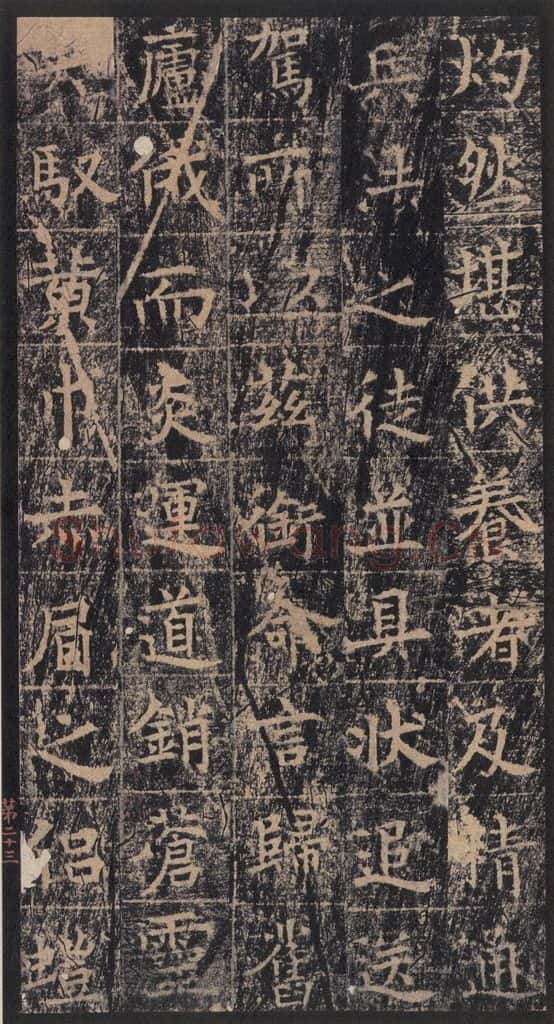 灼然堪供養者及精通
兵法之徒並具狀追送
駕所以茲銜命言歸舊
廬俄而炎運道銷蒼靈
失馭黃巾赤眉之侶
第二十三
shufawang.cn